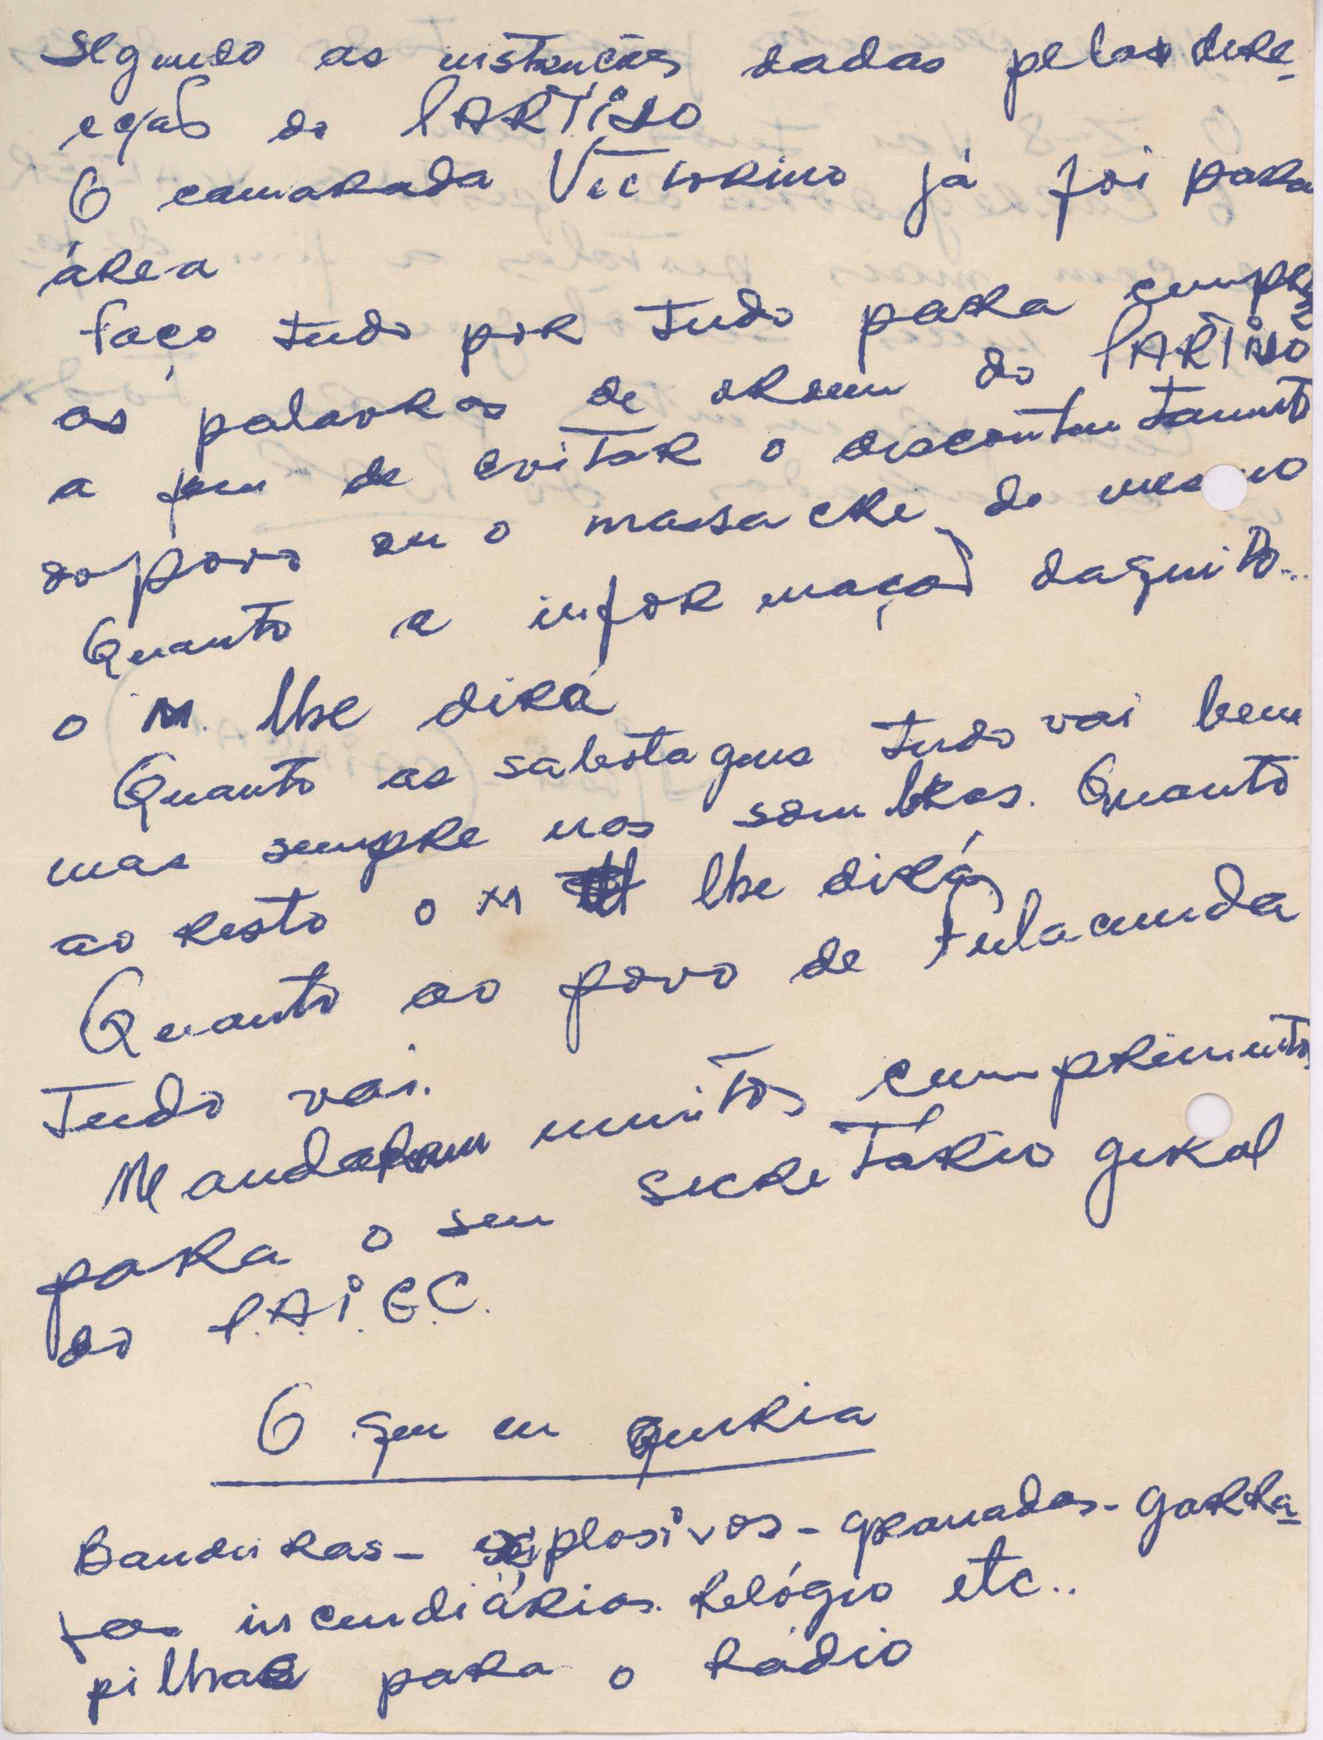 Segundo as instruções dadas pelas dire-
cção do PARTIDO
O camarada Victorino já foi para
área
Faço tudo por tudo para cumprir
as palavras de ordem do PARTIDO
a fim de evitar o descontentamento
do povo ou o massacre do mesmo
Quanto a informação daquito...
o M. lhe dirá
Quanto as sabotagens tudo vai bem
mas sempre nas sombras. Quanto
ao resto o M lhe dirá
Quanto ao povo de Fulacunda
Tudo vai.
Mandaram muitos cumprimentos
para o seu secretário geral
do P.A.I.G.C.
O que eu queria
Bandeiras - explosivos - granadas - garra-
fas incendiárias. Relógio etc..
pilhas para o rádio